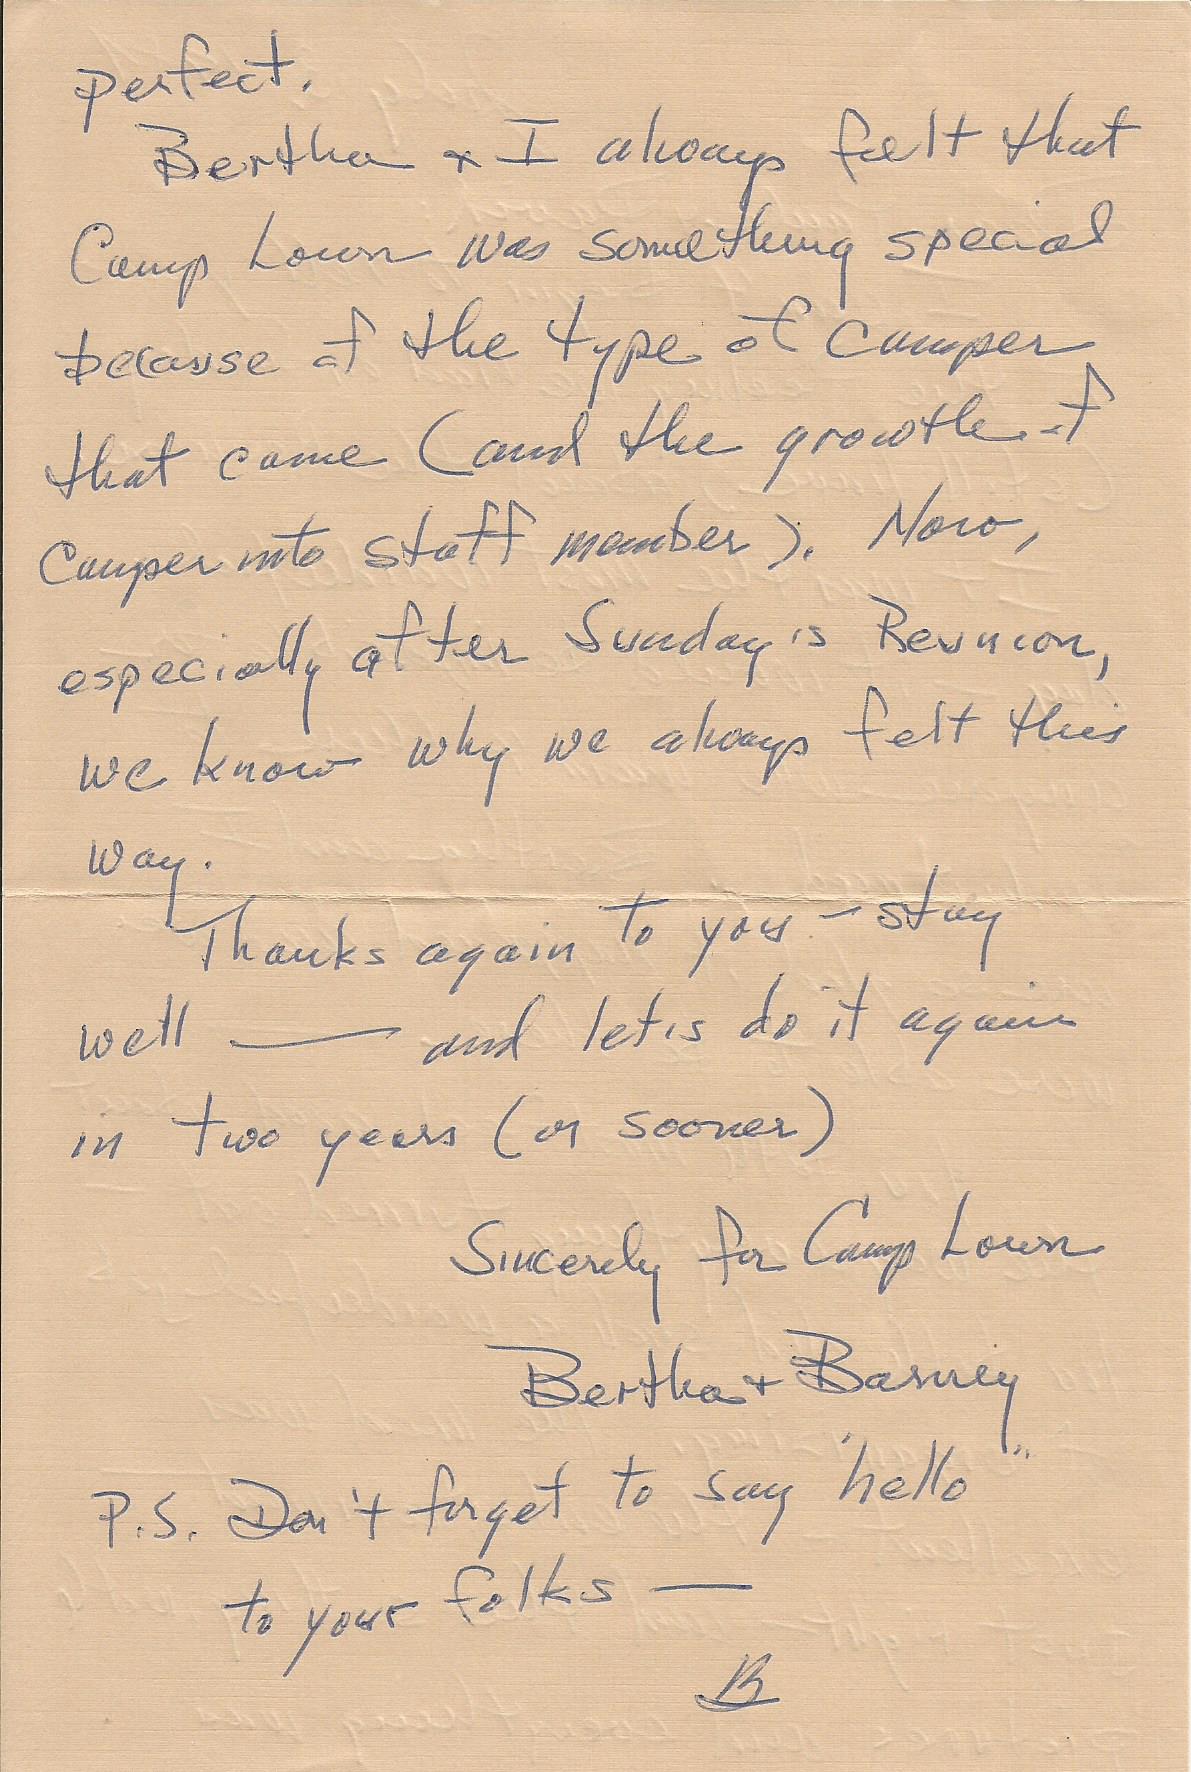 perfect.
Bertha & I always felt that
Camp Lown was something special
because of the type of camper
that came (and the growth of
camper into staff member). Now,
especially after Sunday's Reunion,
we know why we always felt this
way.
Thanks again to you - stay
well — and let's do it again
in two years (or sooner)
Sincerely for Camp Lown
Bertha & Barney
P.S. Don't forget to say "hello"
to your folks —
B